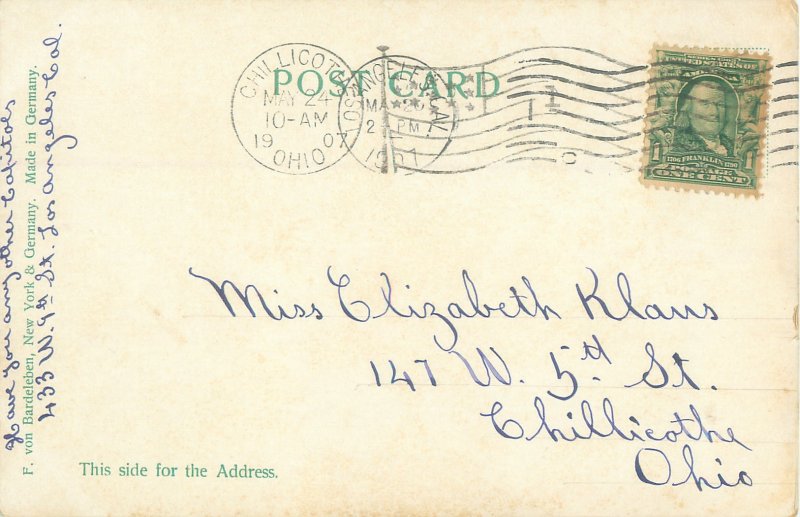 POST CARD
CHILLICOTHE
MAY 24
10-AM
1907
OHIO
LOS ANGELES, CAL.
MAY
2 PM
1907
SERIES 1902
UNITED STATES OF AMERICA
1706 FRANKLIN 1790
POSTAGE
1 ONE CENT 1
Miss Elizabeth Klaus
147 W. 5th St.
Chillicothe
Ohio
This side for the Address.
Have you any other Capitols
F. von Bardeleben, New York & Germany. Made in Germany.
433 W. 9th St. Los Angeles Cal.